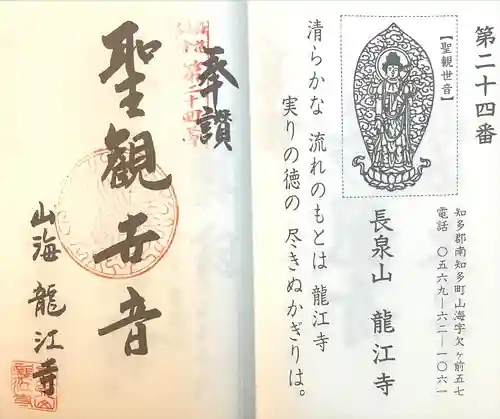 第二十四番
【聖観世音】
知多郡南知多町山海字欠ヶ前五七
電話 〇五六九ー六二ー一〇六一
長泉山 龍江寺
清らかな 流れのもとは 龍江寺
実りの徳の 尽きぬかぎりは。
奉讃
聖観世音
山海 龍江寺